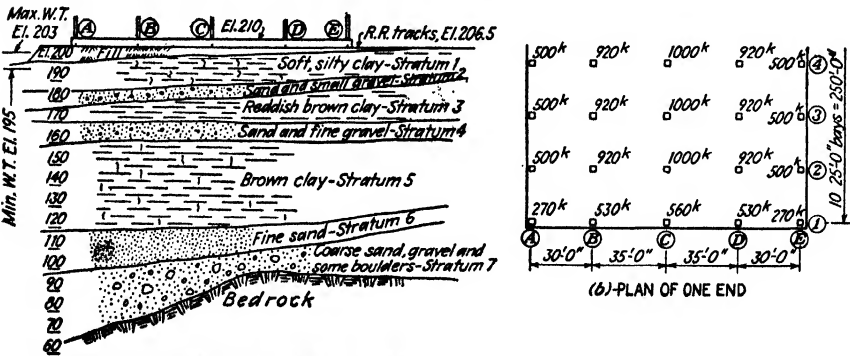 Max. W.T.
El. 203
A B C El. 210 D E R.R. tracks, El. 206.5
El. 200 Fill
Soft, silty clay-Stratum 1
190
Sand and small gravel-Stratum 2
180
Reddish brown clay-Stratum 3
170
Sand and fine gravel-Stratum 4
160
150
Brown clay-Stratum 5
140
130
120
Fine sand-Stratum 6
110
Coarse sand, gravel and
some boulders-Stratum 7
100
90
Bedrock
80
70
60
Min. W.T. El. 195
500k 920k 1000k 920k 500k 4
500k 920k 1000k 920k 500k 3
500k 920k 1000k 920k 500k 2
270k 530k 560k 530k 270k 1
A B C D E
30'-0" 35'-0" 35'-0" 30'-0"
10 25'-0" bays = 250'-0"
(b)-PLAN OF ONE END